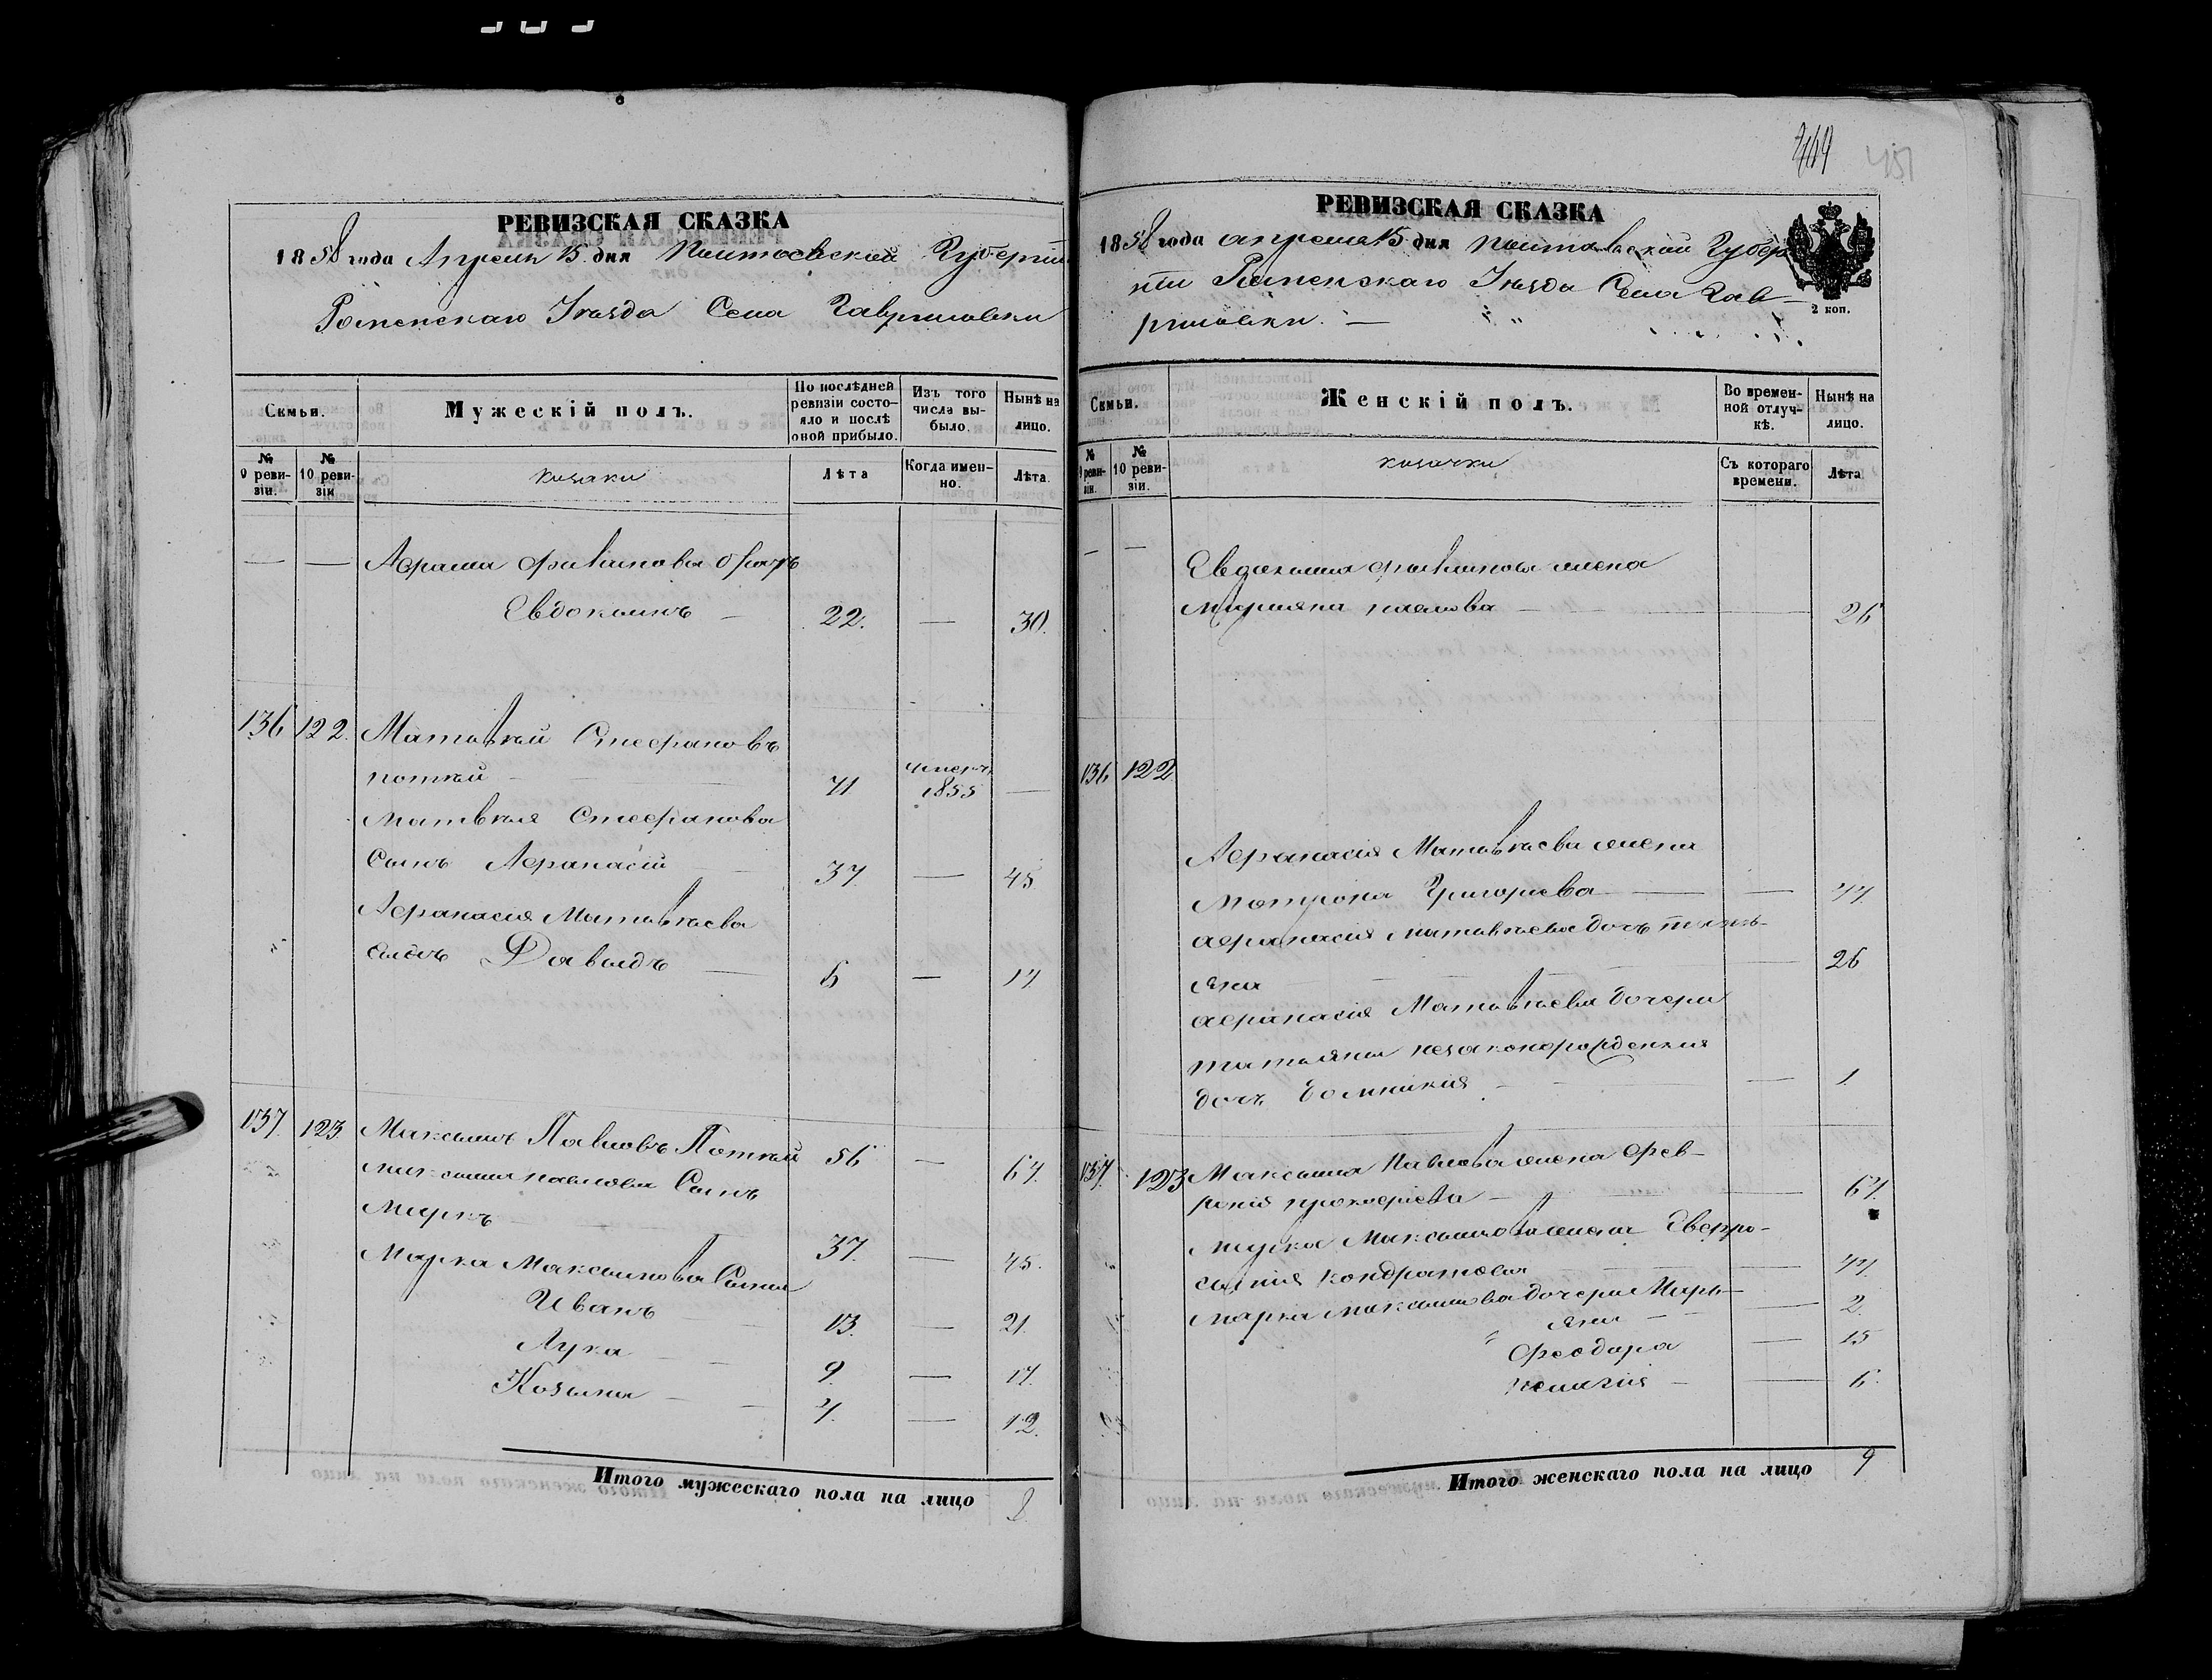 РЕВИЗСКАЯ СКАЗКА
1858 года Апреля 15 дня Полтавской Губернии
Роменскаго Уезда Села Гавриловки
Семьи.
Мужескій полъ.
По послѣдней ревизіи состояло и послѣ оной прибыло.
Изъ того числа выбыло.
Нынѣ на лицо.
№ 9 ревизіи.
№ 10 ревизіи
козаки
Лѣта
Когда именно.
Лѣта.
— — Евдокимъ — 22. — 30.
136 122. Матвѣй Стефановъ
71 умеръ 1855 —
Матвѣя Стефанова
Сынъ Афанасій 37. — 45.
Афанасия Матвѣева
сынъ Давыдъ — 6 — 14.
137. 123. Максимъ Павловъ 56 — 64.
Максима Павлова Сынъ
Маркъ 37. — 45.
Марка Максимова Сыны
Иванъ 13. — 21.
Лука 9. — 17.
Козьма 4. — 12.
Итого мужескаго пола на лицо 8.
451
РЕВИЗСКАЯ СКАЗКА
1858 года апреля 15 дня Полтавской Губер
нии Роменскаго Уезда Села Гав-
риловки. —
2 коп.
Семьи.
Женскій полъ.
Во временной отлучкѣ.
Нынѣ на лицо.
№ 9 ревизіи.
№ 10 ревизіи.
козачки
Съ котораго времени.
Лѣта
— — Евдокима жена
Марияна Павлова — 26
136 122
Афанасия Матвѣева жена
Мотрона Григориева — 44.
Афанасия Матвѣева дочь Тать-
яна 26
Афанасия Матвѣева дочери
Татьяны незаконорожденная
дочь Домникия — 1.
137. 123 Максима Павлова жена Фев-
рония Прокофиева — 64.
Марка Максимова жена Евфро-
синия Кондратова — 44.
Марка Максимова дочери Марь-
яна — 2.
Феодора — 15
Пелагия — 6.
Итого женскаго пола на лицо 9